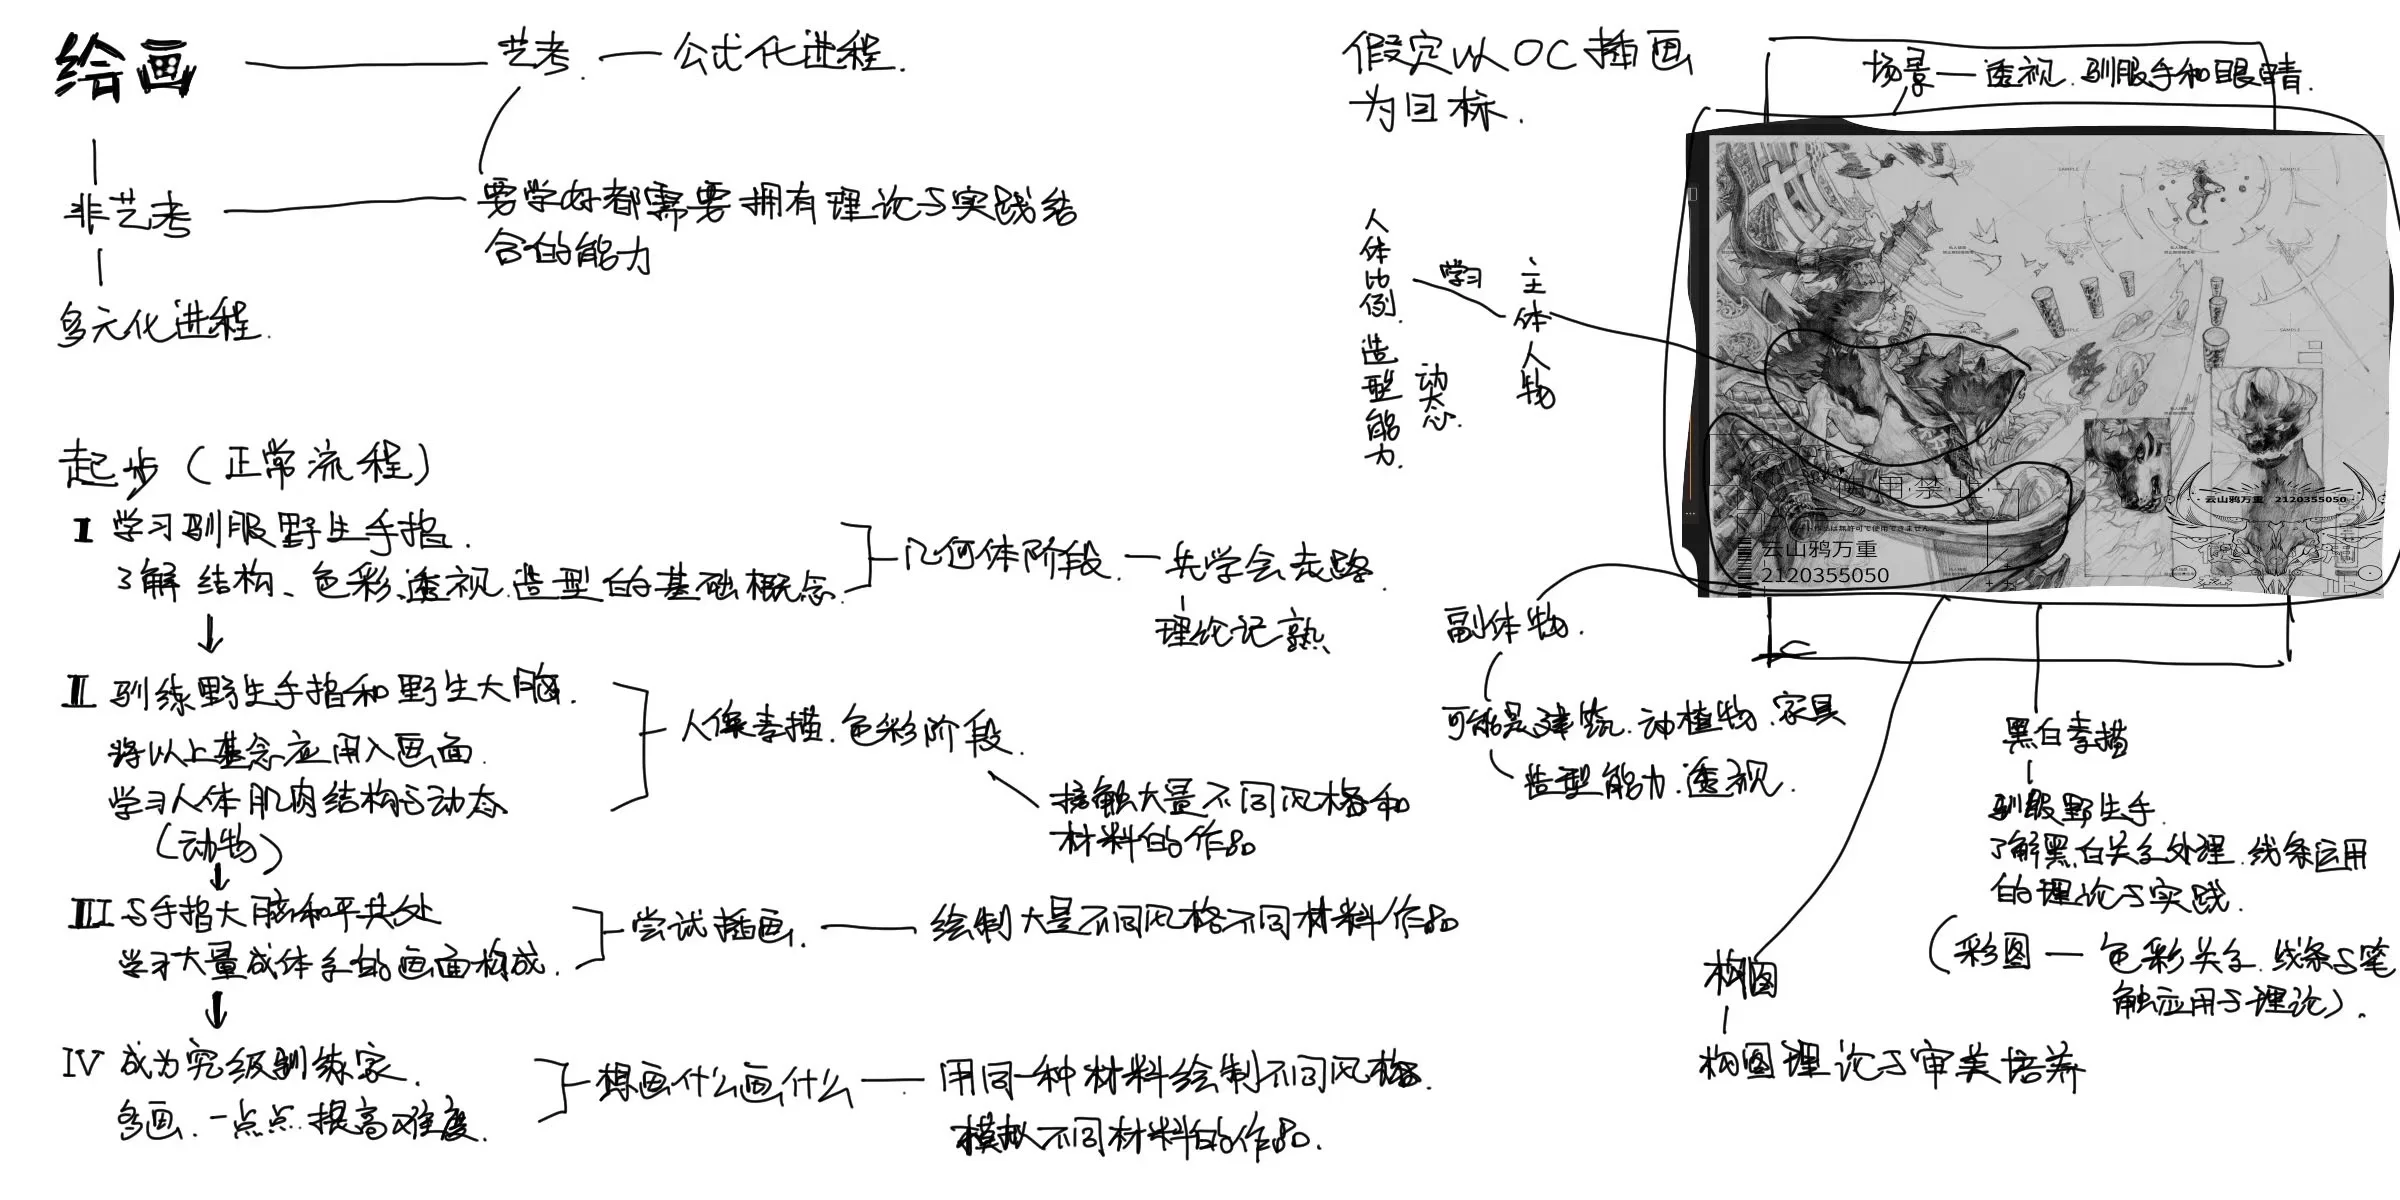 绘画
艺考.
公式化进程.
非艺考
要学好都需要拥有理论与实践结
合的能力
多元化进程.
起步(正常流程)
I 学习驯服野生手指.
了解 结构、色彩、透视、造型的基础概念.
几何体阶段.
先学会走路.
理论记熟、
II 驯练野生手指和野生大脑.
将以上基念应用入画面.
学习人体肌肉结构与动态
(动物)
人像素描.色彩阶段.
接触大量不同风格和
材料的作品
III 与手指大脑和平共处
学习大量成体系的画面构成.
尝试插画.
绘制大量不同风格不同材料作品
IV 成为究级驯练家.
多画.一点点.提高难度.
想画什么画什么
用同一种材料绘制不同风格.
模拟不同材料的作品.
假定以OC插画
为目标.
场景—透视.驯服手和眼睛.
主体人物
学习
人体比例.造型能力.
动态.
副体物.
可能是建筑.动植物.家具
造型能力.透视.
构图
构图理论与审美培养
黑白素描
驯服野生手.
了解黑白关系处理.线条运用
的理论与实践.
(彩图—色彩关系.线条与笔
触应用与理论).
SAMPLE
SAMPLE
SAMPLE
SAMPLE
使用禁止
云山鸦万重
2120355050
云山鸦万重 2120355050